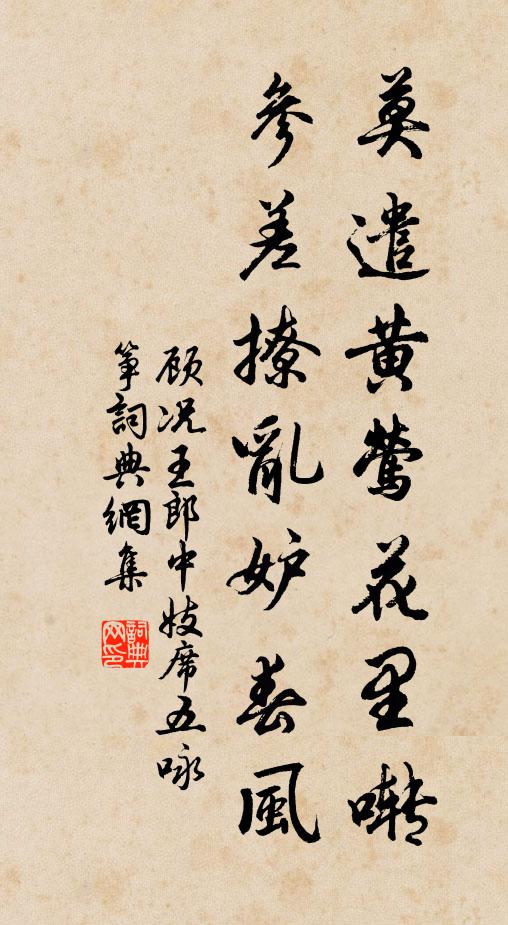 莫遣黄莺花里啭
参差撩亂妒春風
顾况王郎中妓席五咏
筝詞典網集
詞典网印